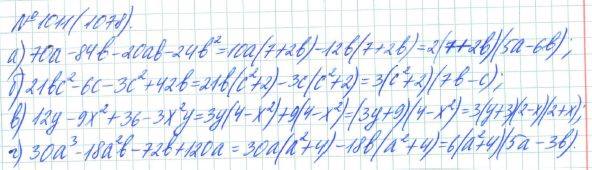 № 1011 (1078).
а) 70a - 84b - 20ab - 24b² = 10a(7+2b) - 12b(7+2b) = 2(7+2b)(5a-6b);
б) 21bc² - 6c - 3c³ + 42b = 21b(c²+2) - 3c(c²+2) = 3(c²+2)(7b-c);
в) 12y - 9x² + 36 - 3x²y = 3y(4-x²) + 9(4-x²) = (3y+9)(4-x²) = 3(y+3)(2-x)(2+x);
г) 30a³ - 18a²b - 72b + 120a = 30a(a²+4) - 18b(a²+4) = 6(a²+4)(5a-3b).